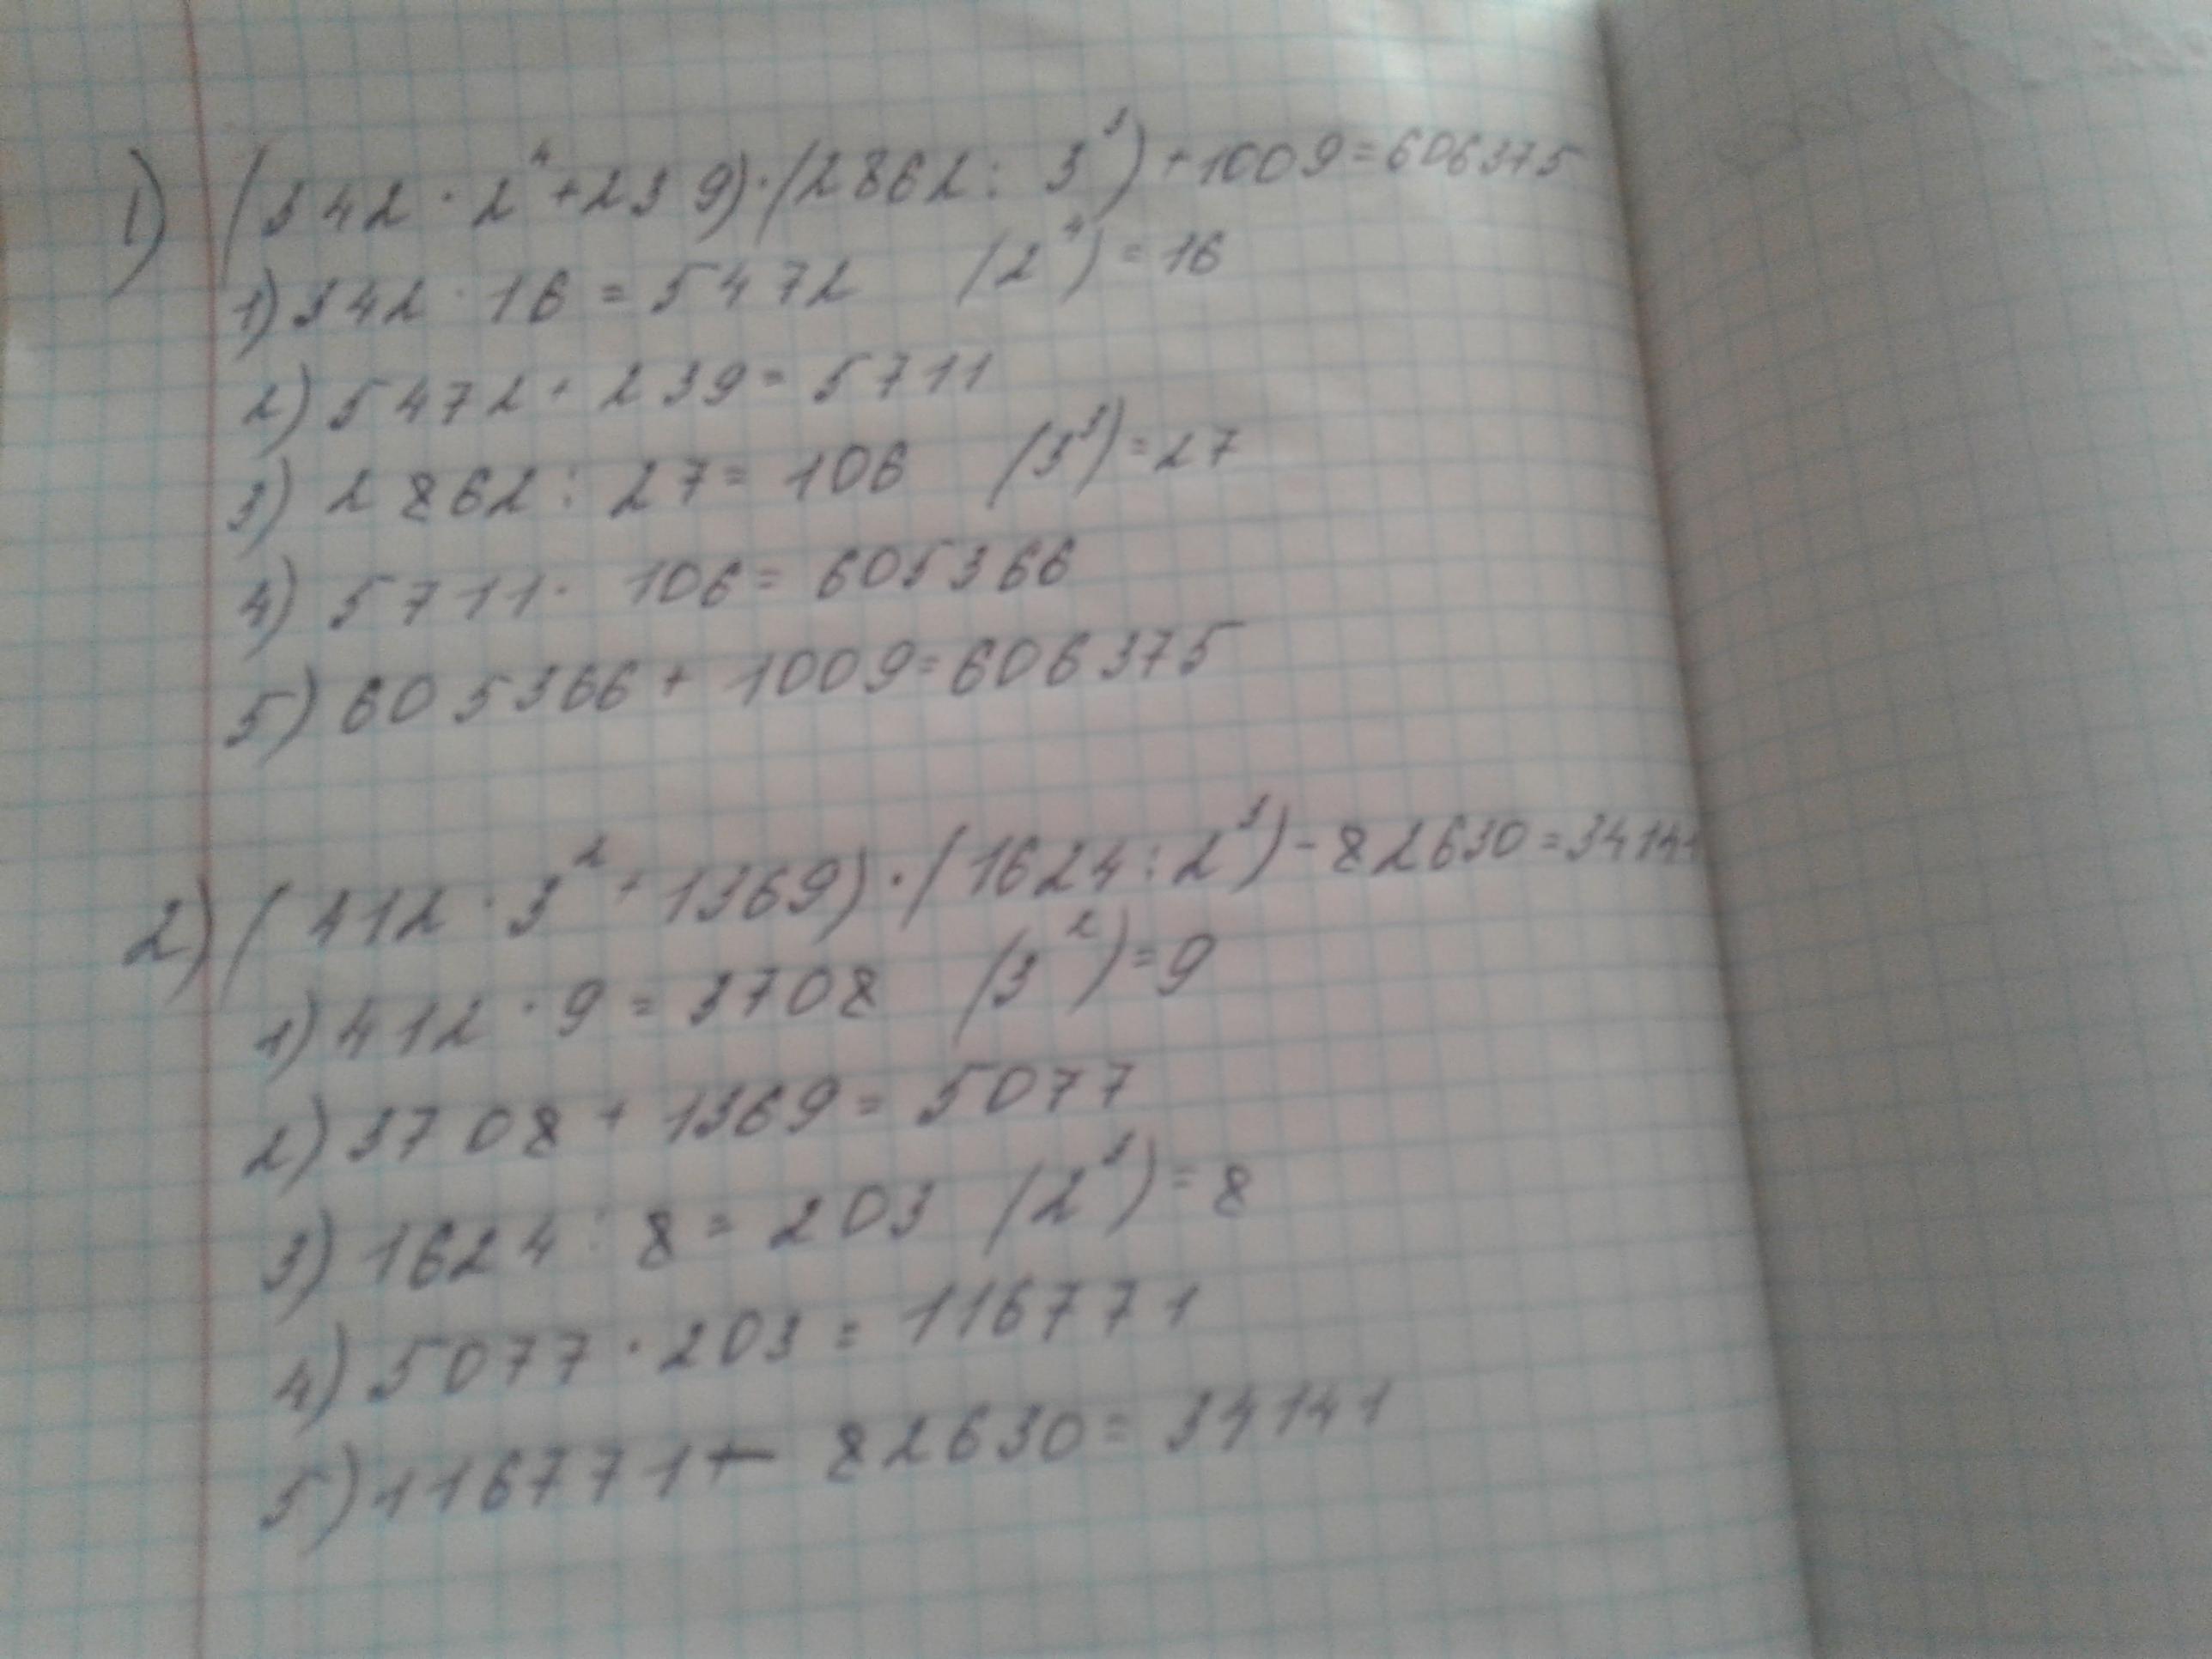 1) (342 · 2⁴ + 239) · (2862 : 3³) + 1009 = 606375
1) 342 · 16 = 5472 (2⁴) = 16
2) 5472 + 239 = 5711
3) 2862 : 27 = 106 (3³) = 27
4) 5711 · 106 = 605366
5) 605366 + 1009 = 606375
2) (412 · 3² + 1369) · (1624 : 2³) - 82630 = 34141
1) 412 · 9 = 3708 (3²) = 9
2) 3708 + 1369 = 5077
3) 1624 : 8 = 203 (2³) = 8
4) 5077 · 203 = 116771
5) 116771 - 82630 = 34141